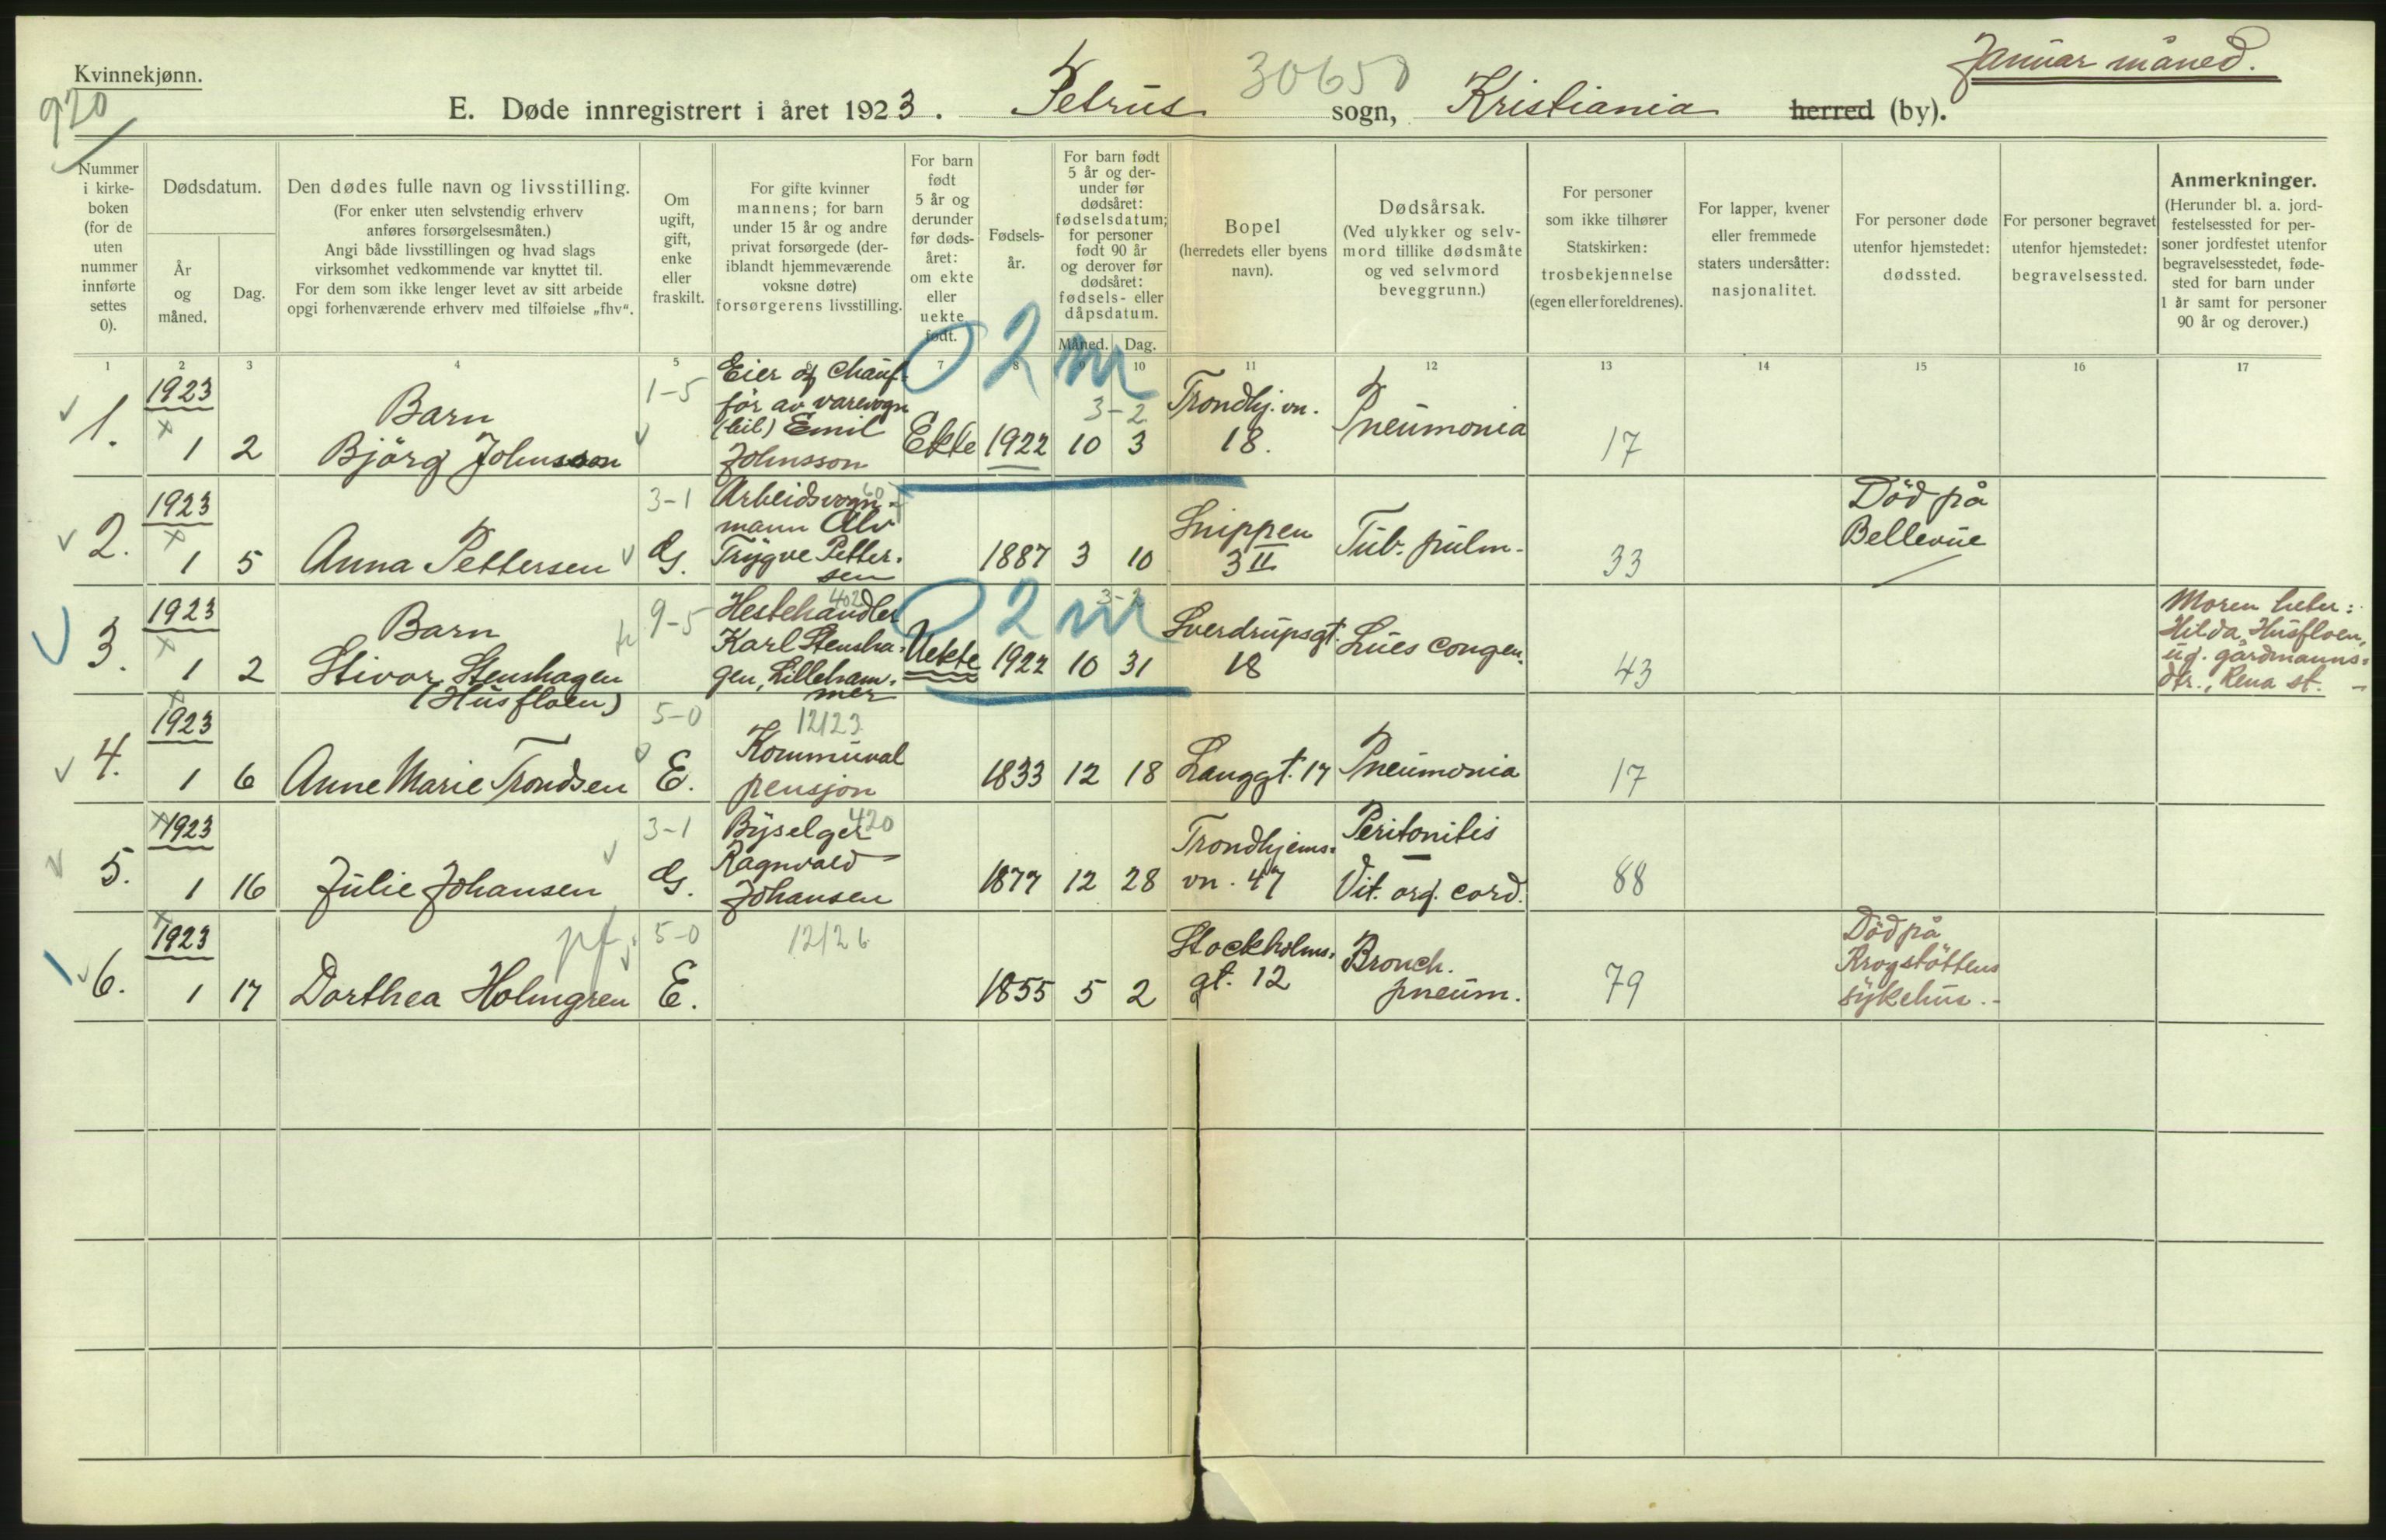 Kvinnekjønn.
920
E. Døde innregistrert i året 1923. Petrus sogn, Kristiania herred (by).
30650
Januar måned.
Nummer i kirke- boken (for de uten nummer innførte settes 0).
Dødsdatum.
År og måned.
Dag.
Den dødes fulle navn og livsstilling.
(For enker uten selvstendig erhverv
anføres forsørgelsesmåten.)
Angi både livsstillingen og hvad slags
virksomhet vedkommende var knyttet til.
For dem som ikke lenger levet av sitt arbeide
opgi forhenværende erhverv med tilføielse „fhv“.
Om ugift, gift, enke eller fraskilt.
For gifte kvinner
mannens; for barn
under 15 år og andre
privat forsørgede (der-
iblandt hjemmeværende
voksne døtre)
forsørgerens livsstilling.
For barn født 5 år og derunder før døds- året: om ekte eller uekte født.
Fødsels- år.
For barn født
5 år og der-
under før
dødsåret:
fødselsdatum;
for personer
født 90 år
og derover før
dødsåret:
fødsels- eller
dåpsdatum.
Måned. Dag.
Bopel
(herredets eller byens
navn).
Dødsårsak.
(Ved ulykker og selv-
mord tillike dødsmåte
og ved selvmord
beveggrunn.)
For personer
som ikke tilhører
Statskirken:
trosbekjennelse
(egen eller foreldrenes).
For lapper, kvener
eller fremmede
staters undersåtter:
nasjonalitet.
For personer døde
utenfor hjemstedet:
dødssted.
For personer begravet
utenfor hjemstedet:
begravelsessted.
Anmerkninger.
(Herunder bl. a. jord-
festelsessted for per-
soner jordfestet utenfor
begravelsesstedet, føde-
sted for barn under
1 år samt for personer
90 år og derover.)
1 2 3 4 5 6 7 8 9 10 11 12 13 14 15 16 17
0 2 m
1. 1923 1 2
Barn
Björg Johnsson
1-5
Eier og chauf-
för av varevogn
(bil) Emil
Johnsson
Ekte 1922 10 3
3-2
Trondhj. vn.
18.
Pneumonia
17
2. 1923 1 5
Anna Pettersen
3-1
G.
Arbeidsvogn-
mann Alv
Trygve Petter-
sen
60
1887 3 10
Snippen
3 II
Tub. pulm.
33
Död på
Bellevue
3. 1923 1 2
Barn
Stivor Stenshagen
(Husfloen)
9-5
Hestehandler
Karl Stensha-
gen, Lilleham-
mer
402
0 2 m
Uekte 1922 10 31
3-2
Sverdrupsgt.
18
Lues congen.
43
Moren heter:
Hilda Husfloen,
ug. gårdmanns-
dtr., Rena st. -
4. 1923 1 6
Anne Marie Trondsen
5-0
E.
12123
Kommunal
pensjon
1833 12 18
Langgt. 17
Pneumonia
17
5. 1923 1 16
Julie Johansen
3-1
G.
Byselger
Ragnvald
Johansen
420
1877 12 28
Trondhjems-
vn. 47
Peritonitis
Vit. org. cord.
88
6. 1923 1 17
Dorthea Holmgren
pf.
5-0
E.
12126
1855 5 2
Stockholms-
gt. 12
Bronch.
pneum.
79
Död på
Krogstöttens
sykehus. -